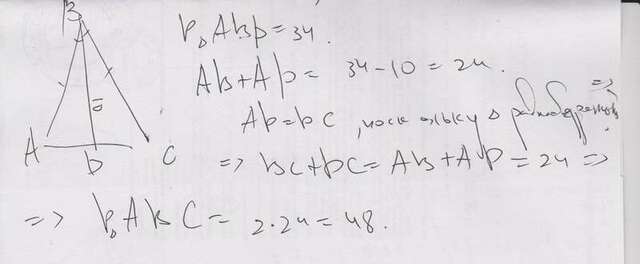 B
P△ABD=34.
AB+AD= 34-10=24.
10
AB=BC, поскольку △ равнобедренный =>
A
D
C
=> BC+DC=AB+AD=24 =>
=> P△ABC= 2·24=48.